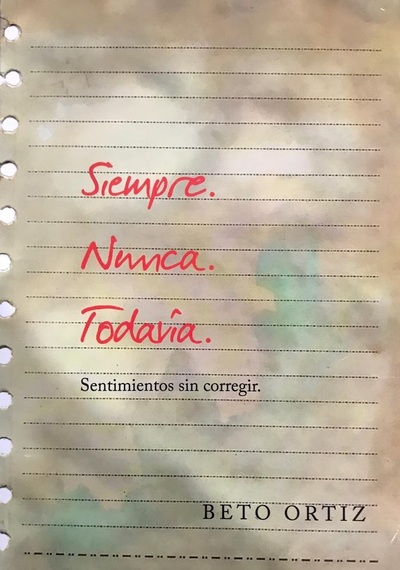 Siempre.
Nunca.
Todavía.
Sentimientos sin corregir.
BETO ORTIZ